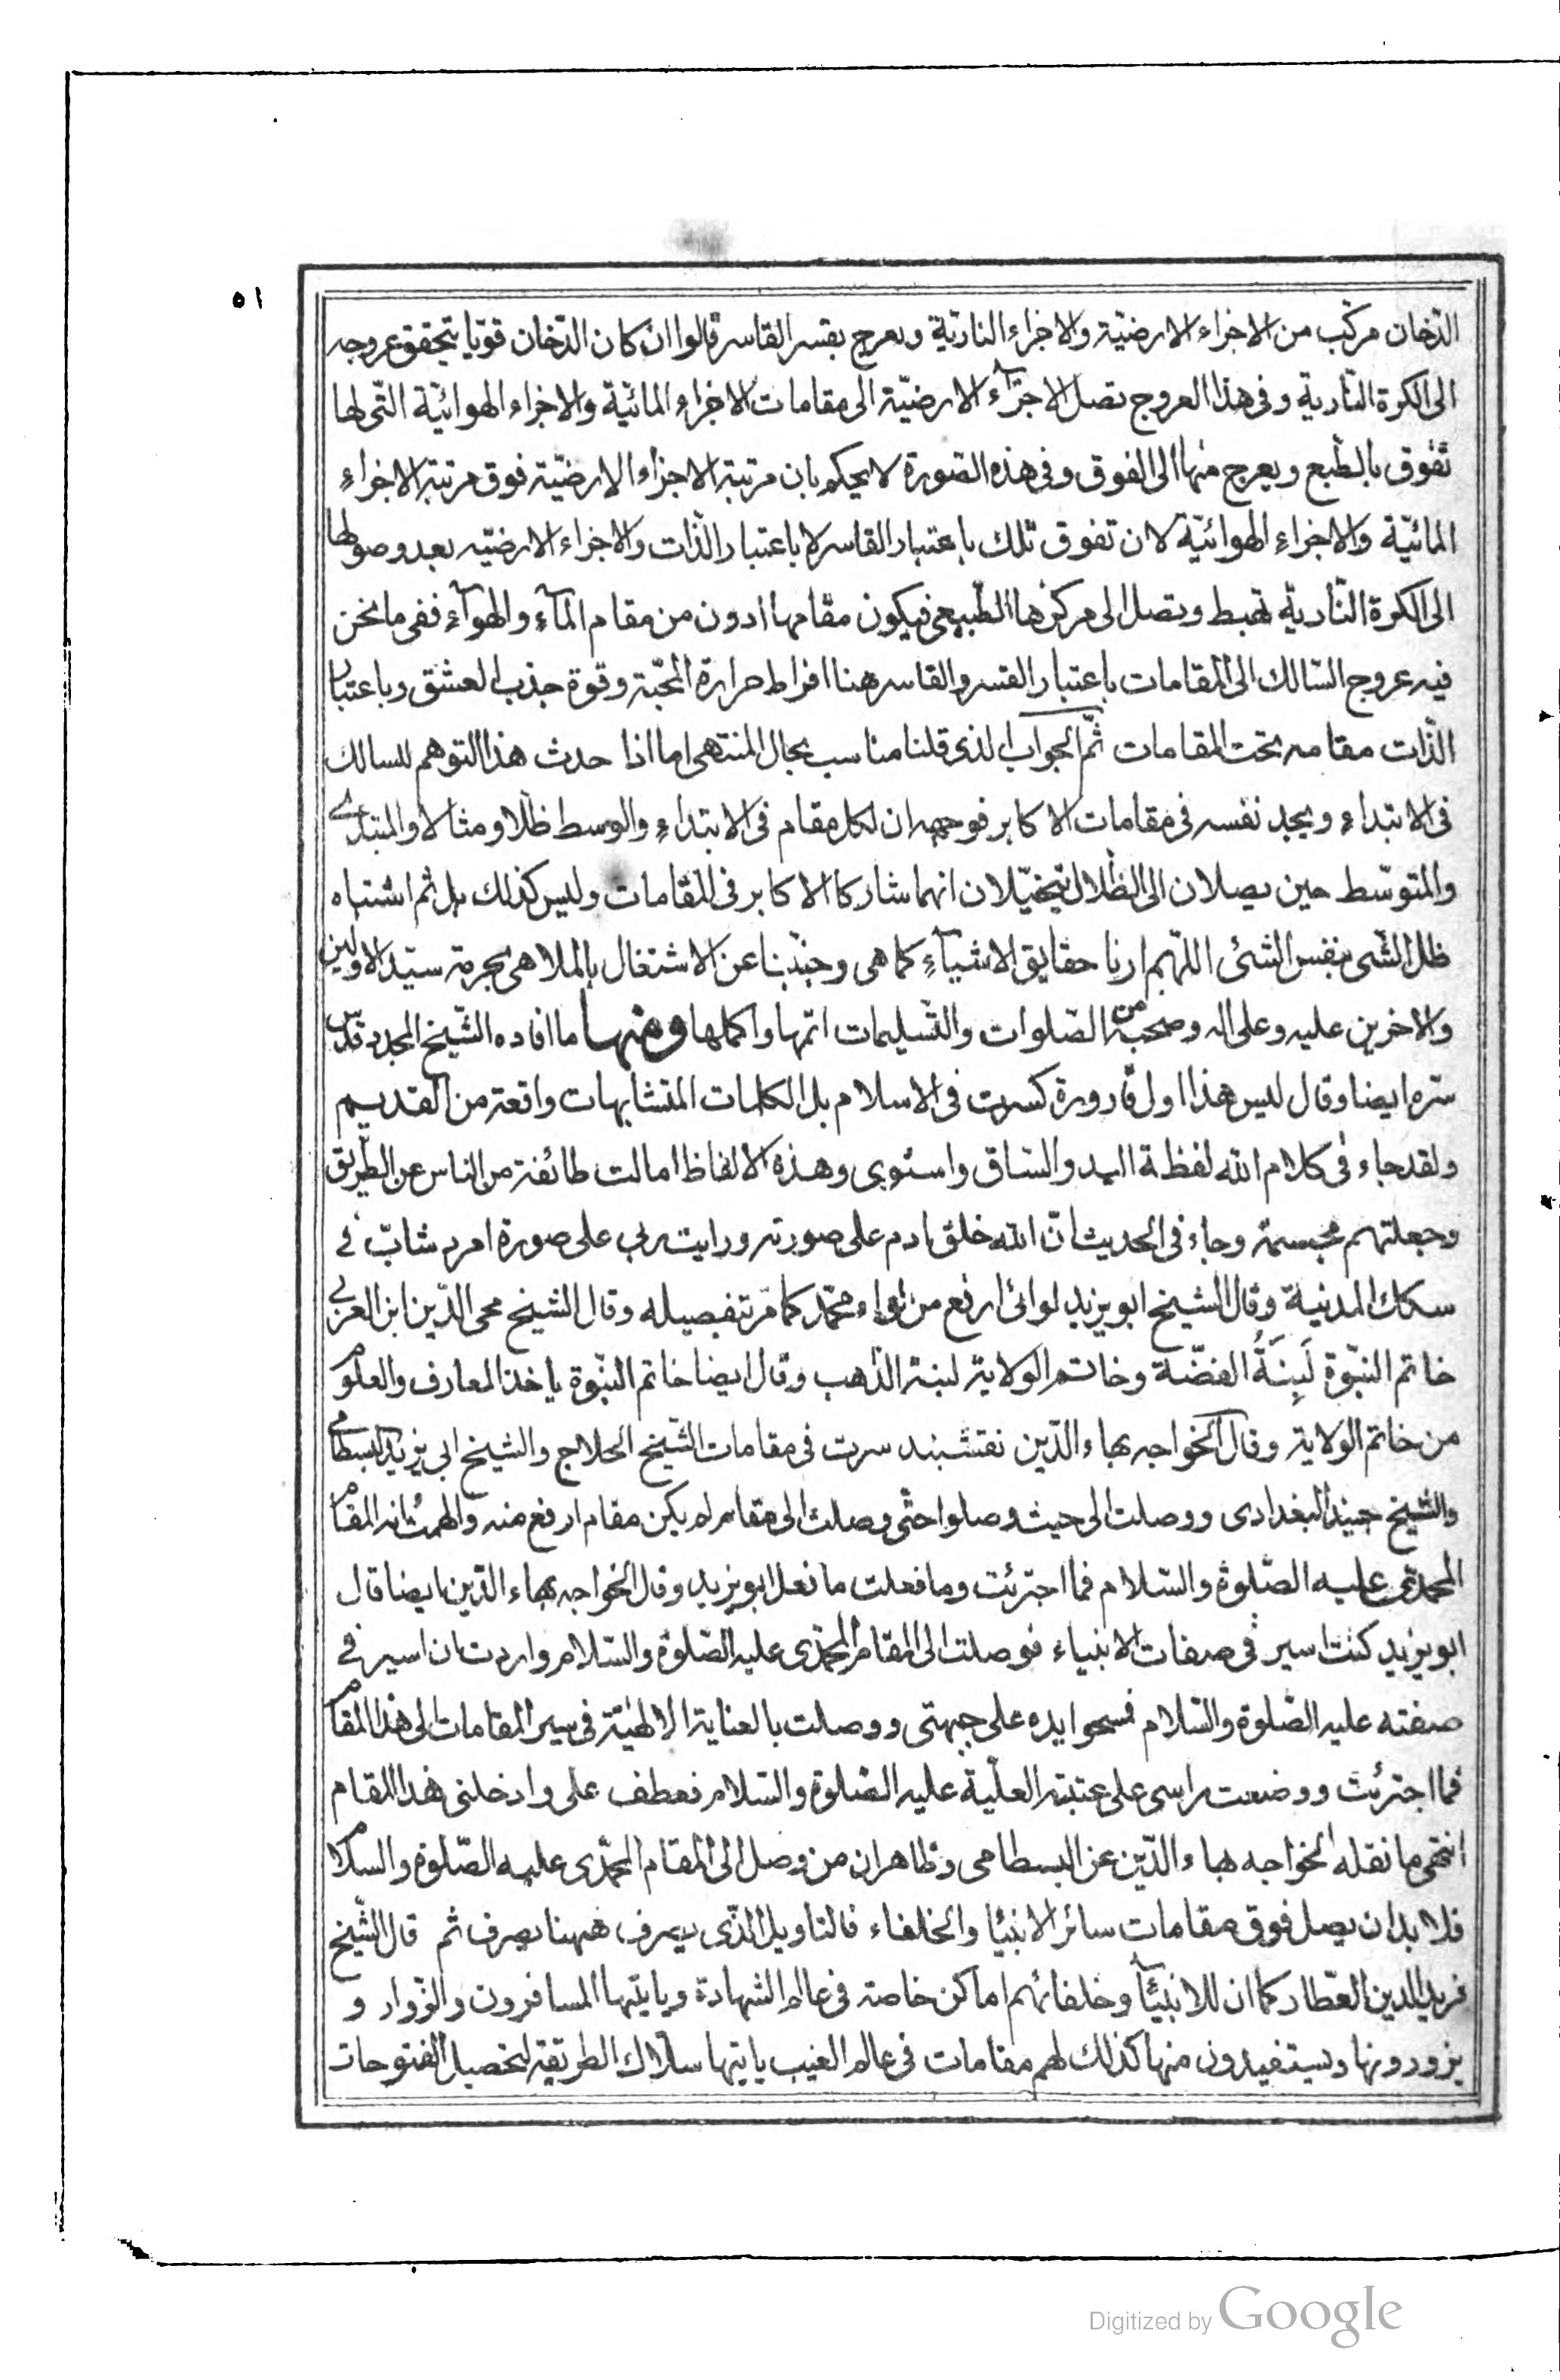 ٥١
الدّخان مركّب من الاجزاء الارضيّة والاجزاء الناريّة ويعرج بقسر القاسر قالوا ان كان الدّخان قويّا يتحقق عروجه
الى الكرة النّارية وفى هذا العروج تصل الاجزآء الارضيّة الى مقامات الاجزاء المائيّة والاجزاء الهوائيّة التّى لها
تفوق بالطّبع ويعرج منها الى الفوق وفى هذه الصّورة لا يحكم بان مرتبة الاجزاء الارضيّة فوق مرتبة الاجزاء
المائيّة والاجزاء الهوائيّة لان تفوق تلك باعتبار القاسر لا باعتبار الذّات والاجزاء الارضيّه بعد وصولها
الى الكرة النّاريّة تهبط وتصل الى مركزها الطّبيعى فيكون مقامها ادون من مقام المآء والهوآء ففى ما نحن
فيه عروج السّالك الى المقامات باعتبار القسر والقاسر هنا افراط حرارة المحّبة وقوة جذب العشق وباعتبار
الذّات مقامه تحت المقامات ثمّ الجواب الذى قلنا مناسب بحال المنتهى اما اذا حدث هذا التوهم للسالك
فى الابتداء ويجد نفسه فى مقامات الاكابر فوجهه ان لكل مقام فى الابتداء والوسط ظلّا ومثالا والمبتدى
والمتوسّط حين يصلان الى الظّلال يتخيّلان انهما شاركا الاكابر فى المقامات وليس كذلك بل ثم اشتباه
ظل الشّى بنفس الشئى اللّهم ارنا حقايق الاشيآء كما هى وجنّبنا عن الاشتغال بالملاهى بحرمة سيّد الاولين
والاخرين عليه وعلى اله وصحبه من الصّلوات والتّسليمات اتمها واكملها ومنها ما افاده الشّيخ المجدد قدّس
سّره ايضا وقال ليس هذا اول قارورة كسرت فى الاسلام بل الكلمات المتشابهات واقعة من القديم
ولقد جاء فى كلام الله لفظة اليد والسّاق واستوى وهذه الالفاظ امالت طائفة من الناس عن الطّريق
وجعلتهم مجسمة وجاء فى الحديث انّ الله خلق ادم على صورته ورايت ربى على صورة امرد شابّ فى
سكك المدنية وقال الشيخ ابو يزيد لوائى ارفع من لواء محمّد كما مّر تفصيله وقال الشيخ محى الدّين ابن العربى
خاتم النبّوة لَبِنَةُ الفضّة وخاتم الولاية لبنة الذّهب وقال ايضا خاتم النّبوة ياخذ المعارف والعلوم
من خاتم الولاية وقال الخواجه بهاء الدّين نقشبند سرت فى مقامات الشّيخ الحلاج والشيخ ابى يزيد البسطامى
والشّيخ جنيد البغدادى ووصلت الى حيث وصلوا حتّى وصلت الى مقام لم يكن مقام ارفع منه والهمت انه المقام
المحمدّى عليه الصّلوة والسّلام فما اجترئت وما فعلت ما فعل ابو يزيد وقال الخواجه بهاء الدّين ايضا قال
ابو يزيد كنت اسير فى صفات الانبياء فوصلت الى المقام المحمّدى عليه الصّلوة والسّلام واردت ان اسير فى
صفته عليه الصّلوة والسّلام فسحوا يده على جبهتى ووصلت بالعناية الالهيّة فى سير المقامات الى هذا المقام
فما اجترئت ووضعت راسى على عتبته العلّية عليه الصّلوة والسّلام فعطف على وادخلنى هذا المقام
انتهى ما نقله الخواجه بهاء الدّين عن البسطامى وظاهر ان من وصل الى المقام المحمّدى عليه الصّلوة والسّلام
فلا بد ان يصل فوق مقامات سائر الانبيا والخلفاء فالتاويل الذّى يعرف ههنا يصرف ثم قال الشّيخ
فريد الدين العّطار كما ان للانبيآ وخلفائهم اماكن خاصة فى عالم الشهادة وياتيها المسافرون والزّوار و
يزورونها ويستفيدون منها كذلك لهم مقامات فى عالم الغيب ياتيها سلّاك الطريقة لتحصيل الفتوحات
Digitized by Google